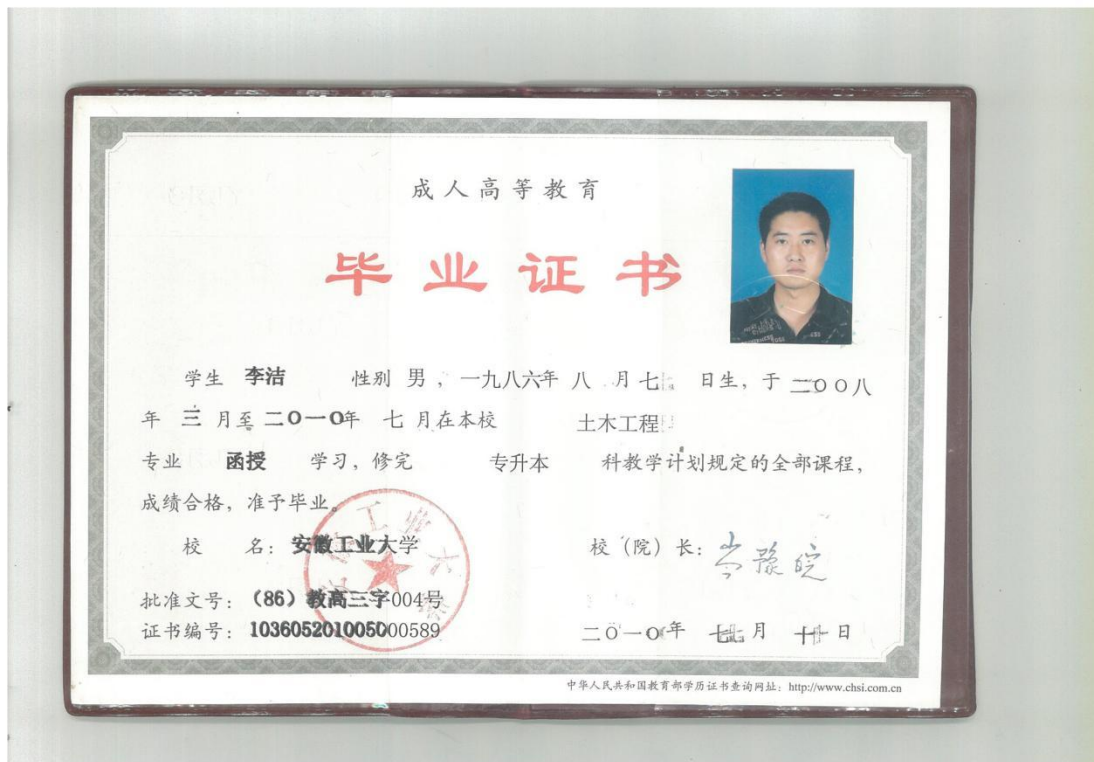 成人高等教育
毕业证书
学生 李洁 性别 男，一九八六年 八 月 七 日生，于 二〇〇八
年 三 月至 二〇一〇年 七 月在本校 土木工程
专业 函授 学习，修完 专升本 科教学计划规定的全部课程，
成绩合格，准予毕业。
校 名：安徽工业大学 校（院）长：岑豫皖
批准文号：（86）教高三字004号
证书编号：103605201005000589 二〇一〇年 七 月 十 日
中华人民共和国教育部学历证书查询网址：http://www.chsi.com.cn